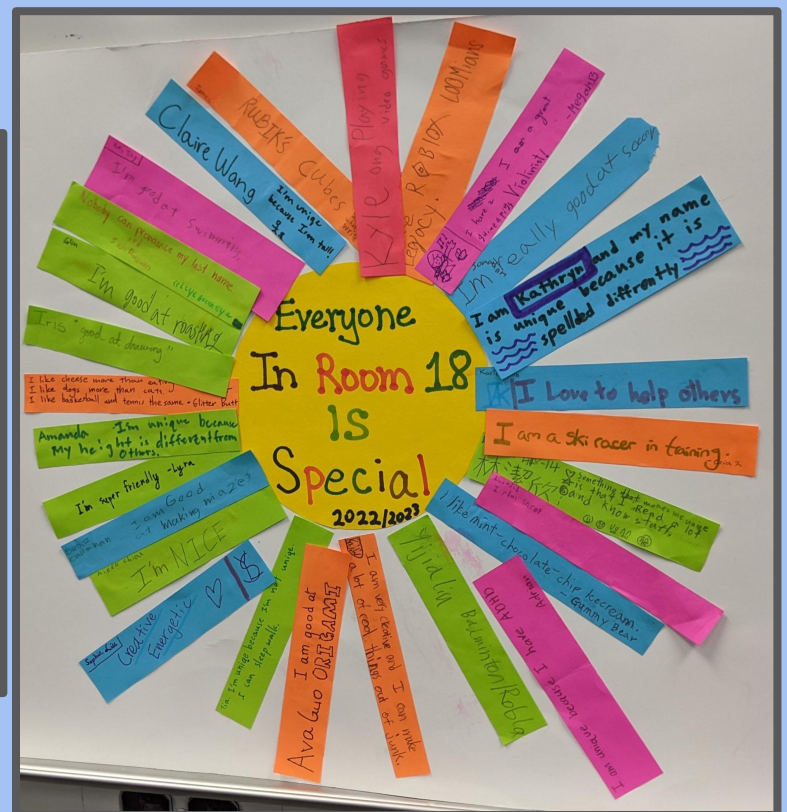 Everyone
In Room 18
Is
Special
2022/2023
Kyle ong Playing
video games
ROBLOX LOOMians
legacy.
I am a great
Violinist!
-Megan B
I have 2
guinea pigs
I'm really good at soccer
I am Kathryn and my name
is unique because it is
spelled diffrently
I Love to help others
I am a ski racer in training.
something that makes me unique
is that I Read a lot
and know stuff.
I like mint-chocolate chip Icecream.
- Gummy Bear
I am unique because I have ADHD
Yijia Lin
Badminton/Roblox
I am very creative and I can make
a lot of cool things out of junk.
I am good at
Ava Guo ORIGAMI
Tia I'm uniqe because I'm not uniqe
I can sleep walk.
Creative
Energetic
I'm NICE
I am Good
at making mazes
I'm super friendly -Lyra
Amanda I'm unique because
My height is different from
others.
I like cheese more than eating.
I like dogs more than cats.
I like basketball and tennis the same - Glitter Butt
Iris "good at drawing"
I'm good at roasting
Nobody can pronounce my last name
I'm good at Swimming
Claire Wang
I'm uniqe
because I'm tall!
RUBIK'S
CUBES